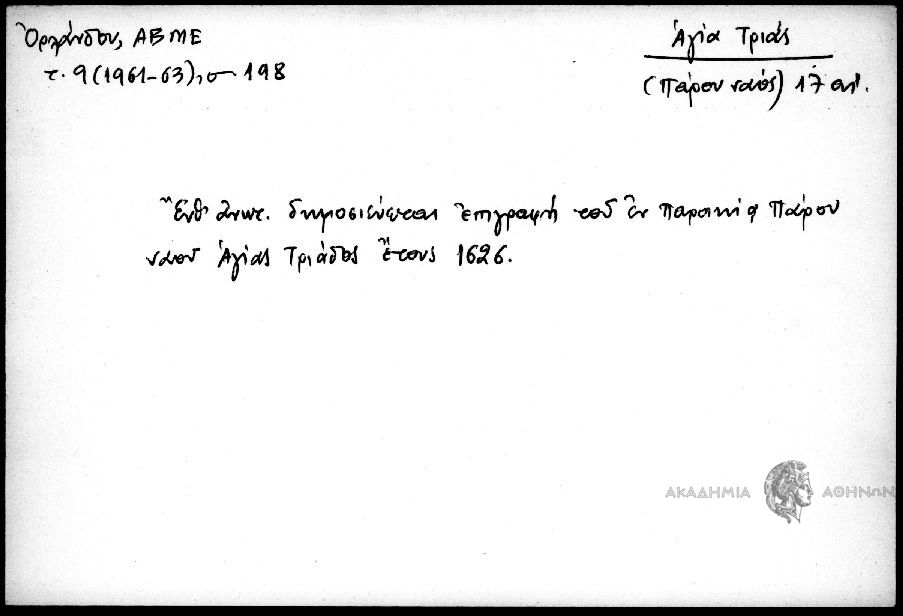 Ὀρλάνδου, ΑΒΜΕ
τ. 9 (1961-63), σ. 198
Ἁγία Τριάς
(Πάρου ναός) 17 αἰ.
Ἔνθ' ἀνωτ. δημοσιεύεται ἐπιγραφὴ τοῦ ἐν Παροικίᾳ Πάρου
ναοῦ Ἁγίας Τριάδος ἔτους 1626.
ΑΚΑΔΗΜΙΑ ΑΘΗΝΩΝ